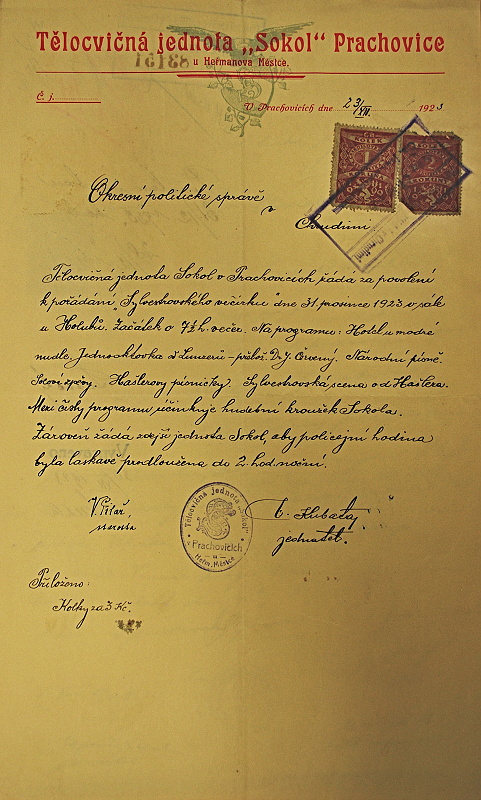 Tělocvičná jednota „Sokol" Prachovice
u Heřmanova Městce.
Č. j.
V Prachovicích dne 23/XII. 1923
KOLEK
1
KORUNA
KOLEK
2
KORUNY
Okresní politické správě
v
Chrudimi
Tělocvičná jednota Sokol v Prachovicích žádá za povolení
k pořádání „Sylvestrovského večírku" dne 31. prosince 1923 v sále
u Holubů. Začátek o 7½ h. večer. Na programu: Hotel u modré
nudle. Jednoaktovka - přelož. Dr J. Červený. Národní písně.
Solové zpěvy. Hašlerovy písničky. Sylvestrovská scena od Hašlera.
Mezi čísly programu účinkuje hudební kroužek Sokola.
Zároveň žádá zdejší jednota Sokol, aby policejní hodina
byla laskavě prodloužena do 2. hod. noční.
starosta
jednatel.
Tělocvičná jednota „Sokol"
v Prachovicích
u
Heřm. Městce
Přiloženo:
Kolky za 3 Kč.